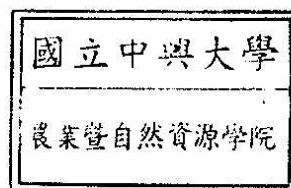 國立中興大學
農業暨自然資源學院